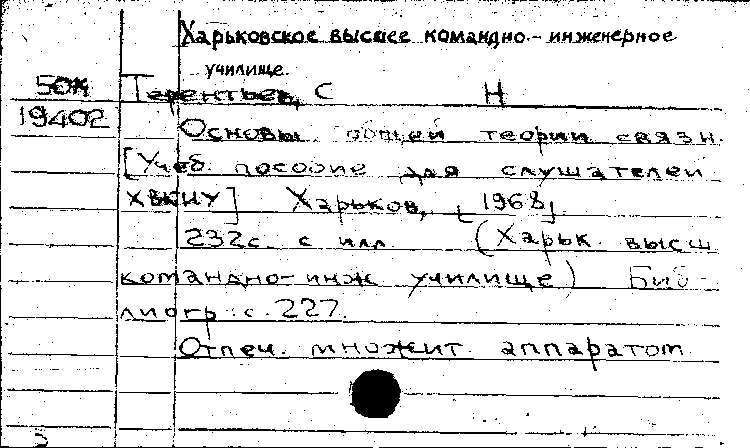 Харьковское высшее командно-инженерное
училище.
50к Терентьев, С Н
19402
Основы общей теории связи.
[Учеб. пособие для слушателей
ХВКИУ] Харьков, [1968].
232с. с илл. (Харьк. высш
командно-инж училище) Биб-
лиогр.: с. 227.
Отпеч. множит. аппаратом